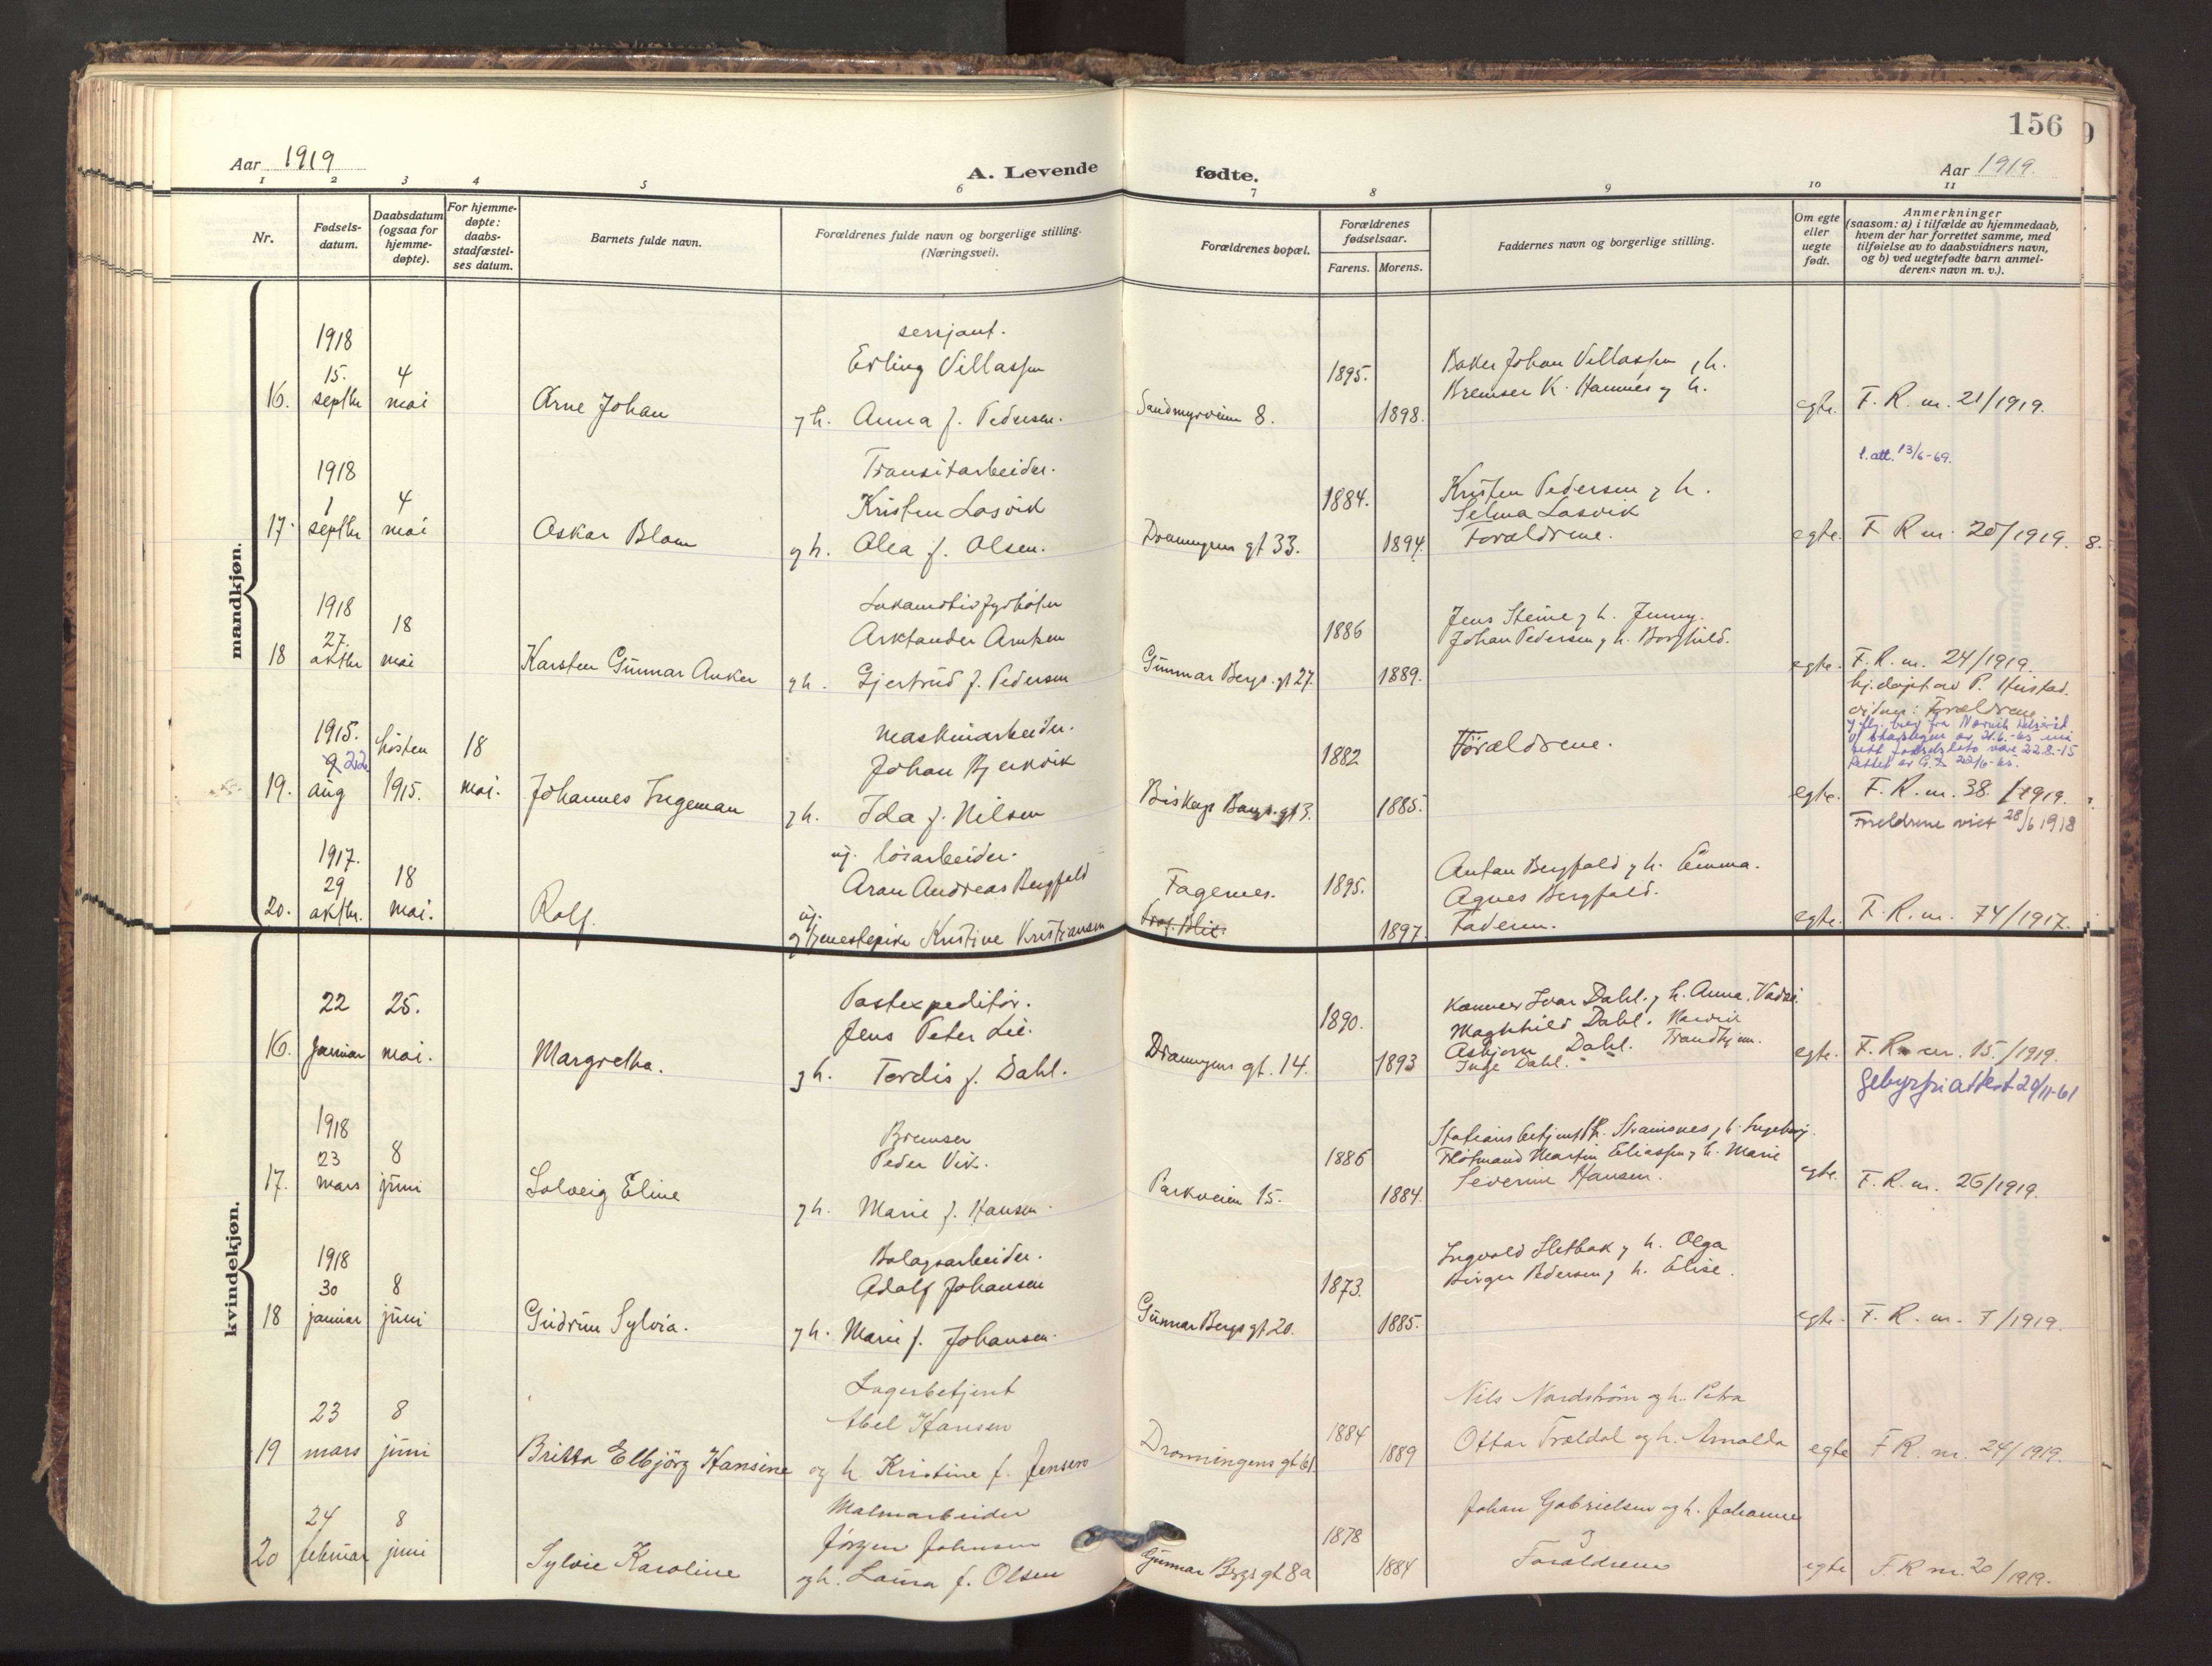 156
Aar 1919
A. Levende fødte.
Aar 1919.
1 2 3 4 5 6 7 8 9 10 11
Nr.
Fødsels-
datum.
Daabsdatum
(ogsaa for
hjemme-
døpte).
For hjemme-
døpte:
daabs-
stadfæstel-
ses datum.
Barnets fulde navn.
Forældrenes fulde navn og borgerlige stilling.
(Næringsvei).
Forældrenes bopæl.
Forældrenes
fødselsaar.
Farens. Morens.
Faddernes navn og borgerlige stilling.
Om egte
eller
uegte
født.
Anmerkninger
(saasom: a) i tilfælde av hjemmedaab,
hvem der har forrettet samme, med
tilføielse av to daabsvidners navn,
og b) ved uegtefødte barn anmel-
derens navn m. v.).
mandkjøn.
1918
15. 4
16. septbr mai
Arne Johan
sersjant.
Erling Villassen
g h. Anna f. Pedersen.
Sandmyrveien 8.
1895.
1898.
Baker Johan Villassen g h.
Bremser K. Hannes g h.
egte.
F. R. nr. 21/1919.
1918
1 4
17. septbr mai
Oskar Blom
Transitarbeider.
Kristen Losvik
g h. Olea f. Olsen.
Dronningens gt 33.
1884.
1894.
Kristen Pedersen g h.
Selma Losvik
Forældrene.
egte.
l. att. 13/6-69.
F R nr. 20/1919.
8.
1918
27. 18
18 oktbr mai
Karsten Gunnar Anker
Lokomotivfyrbøter
Arktander Arntzen
g h. Gjertrud f. Pedersen
Gunnar Bergs gt 27.
1886
1889.
Jens Steine g h. Jenny.
Johan Pedersen g h. Borghild.
egte.
F. R. nr. 24/1919.
1915.
9 22 høsten 18
19. aug 1915. mai.
Johannes Ingeman
maskinarbeider.
Johan Bjerkvik
g h. Ida f. Nilsen
Biskop Bangs gt 3.
1882
1885.
Forældrene.
egte.
hj. døpt av P. Hustad.
vidner: Forældrene
F. R. nr. 38. /1919.
Foreldrene viet 28/6 1918
1917.
29 18
20. oktbr. mai.
Rolf.
ug. løsarbeider.
Aron Andreas Bergfald
ug.
g tjenestepike Kristine Kristiansen
Fagernes.
1895.
1897.
Anton Bergfald g h. Emma.
Agnes Bergfald.
Faderen.
egte.
F. R. nr. 74/1917.
kvindekjøn.
22 25.
16. januar mai.
Margretha.
Postexpeditør.
Jens Peter Lie.
g h. Tordis f. Dahl.
Dronningens gt. 14.
1890.
1893
Kæmner Ivar Dahl. g h. Anna. Vadsø.
Maghhild Dahl. Narvik
Asbjørn Dahl. Trondhjem.
Inge Dahl. " "
egte.
F. R. nr. 15./1919.
Gebyrfri attest 29/11-61
1918
23 8
17. mars juni
Solveig Eline
Bremser
Peder Vik.
g h. Marie f. Hansen.
Parkveien 15.
1886
1884.
Stationsbetjent K. Strømsnes, h. Ingeborg.
Fløtmand Martin Eliassen g h. Marie
Severine Hansen.
egte.
F. R. nr. 26/1919.
1918
30 8
18 januar juni
Gudrun Sylvia.
Bolagsarbeider.
Adolf Johansen
g h. Marie f. Johansen.
Gunnar Bergs gt 20.
1873.
1885.
Ingvald Sletbak g h. Olga
Birger Pedersen g h. Elise.
egte.
F. R. nr. 7/1919.
23 8
19 mars juni
Britta Elbjörg Hansine
Lagerbetjent
Abel Hansen
og h Kristine f. Jensen
Dronningens gt 61
1884
1889
Nils Nordström og h. Petra
Ottar Trældal og h. Arnolda
egte
F R. nr. 24/1919.
24 8
20 februar juni
Sylvie Karoline
Malmarbeider
Jørgen Johnsen
og h. Laura f. Olsen
Gunnar Bergs gt 8a
1878
1884
Johan Gabrielsen og h. Johanne
Forældrene
egte
F R nr. 20/1919.